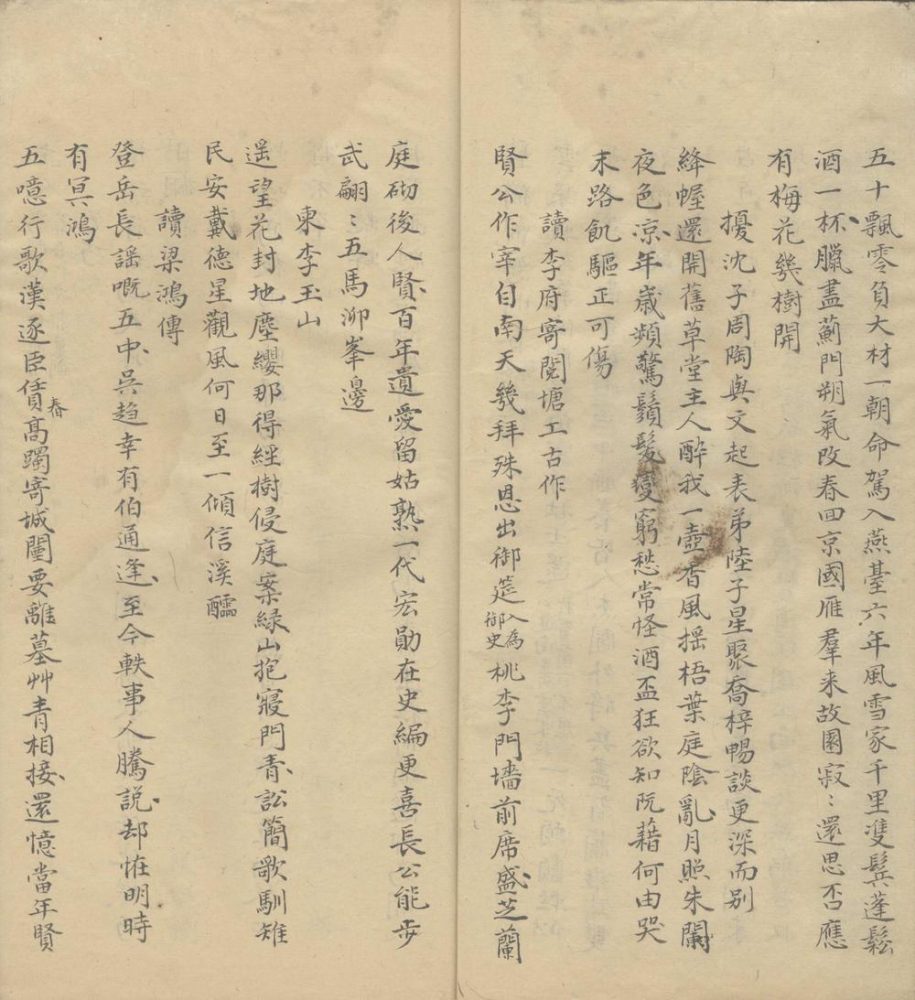 五十飄零負大材一朝命駕入燕臺六年風雪家千里雙鬂蓬鬆
酒一杯臘盡薊門朔氣改春回京國雁羣来故園寂〻還思否應
有梅花幾樹開
擾沈子周陶與文起表弟陸子星聚喬梓暢談更深而别
絳幄還開舊草堂主人醉我一壺香風揺梧葉庭陰亂月照朱闌
夜色凉年歲頻驚鬚髮變窮愁常怪酒盃狂欲知阮藉何由哭
末路飢驅正可傷
讀李府寄閲塘工古作
賢公作宰自南天幾拜殊恩出御筵入為御史桃李門墻前席盛芝蘭
庭砌後人賢百年遺愛留姑熟一代宏勛在史編更喜長公能步
武翩〻五馬泖峯邊
柬李玉山
遥望花封地塵纓那得經樹侵庭案緑山抱寢門青訟簡歌馴雉
民安戴德星觀風何日至一傾信溪醽
讀梁鴻傳
登岳長謡嘅五中吳趋幸有伯通逢至今軼事人騰説却恠明時
有冥鴻
五噫行歌漢逐臣賃舂髙躅寄城闉要離墓艸青相接還憶當年賢